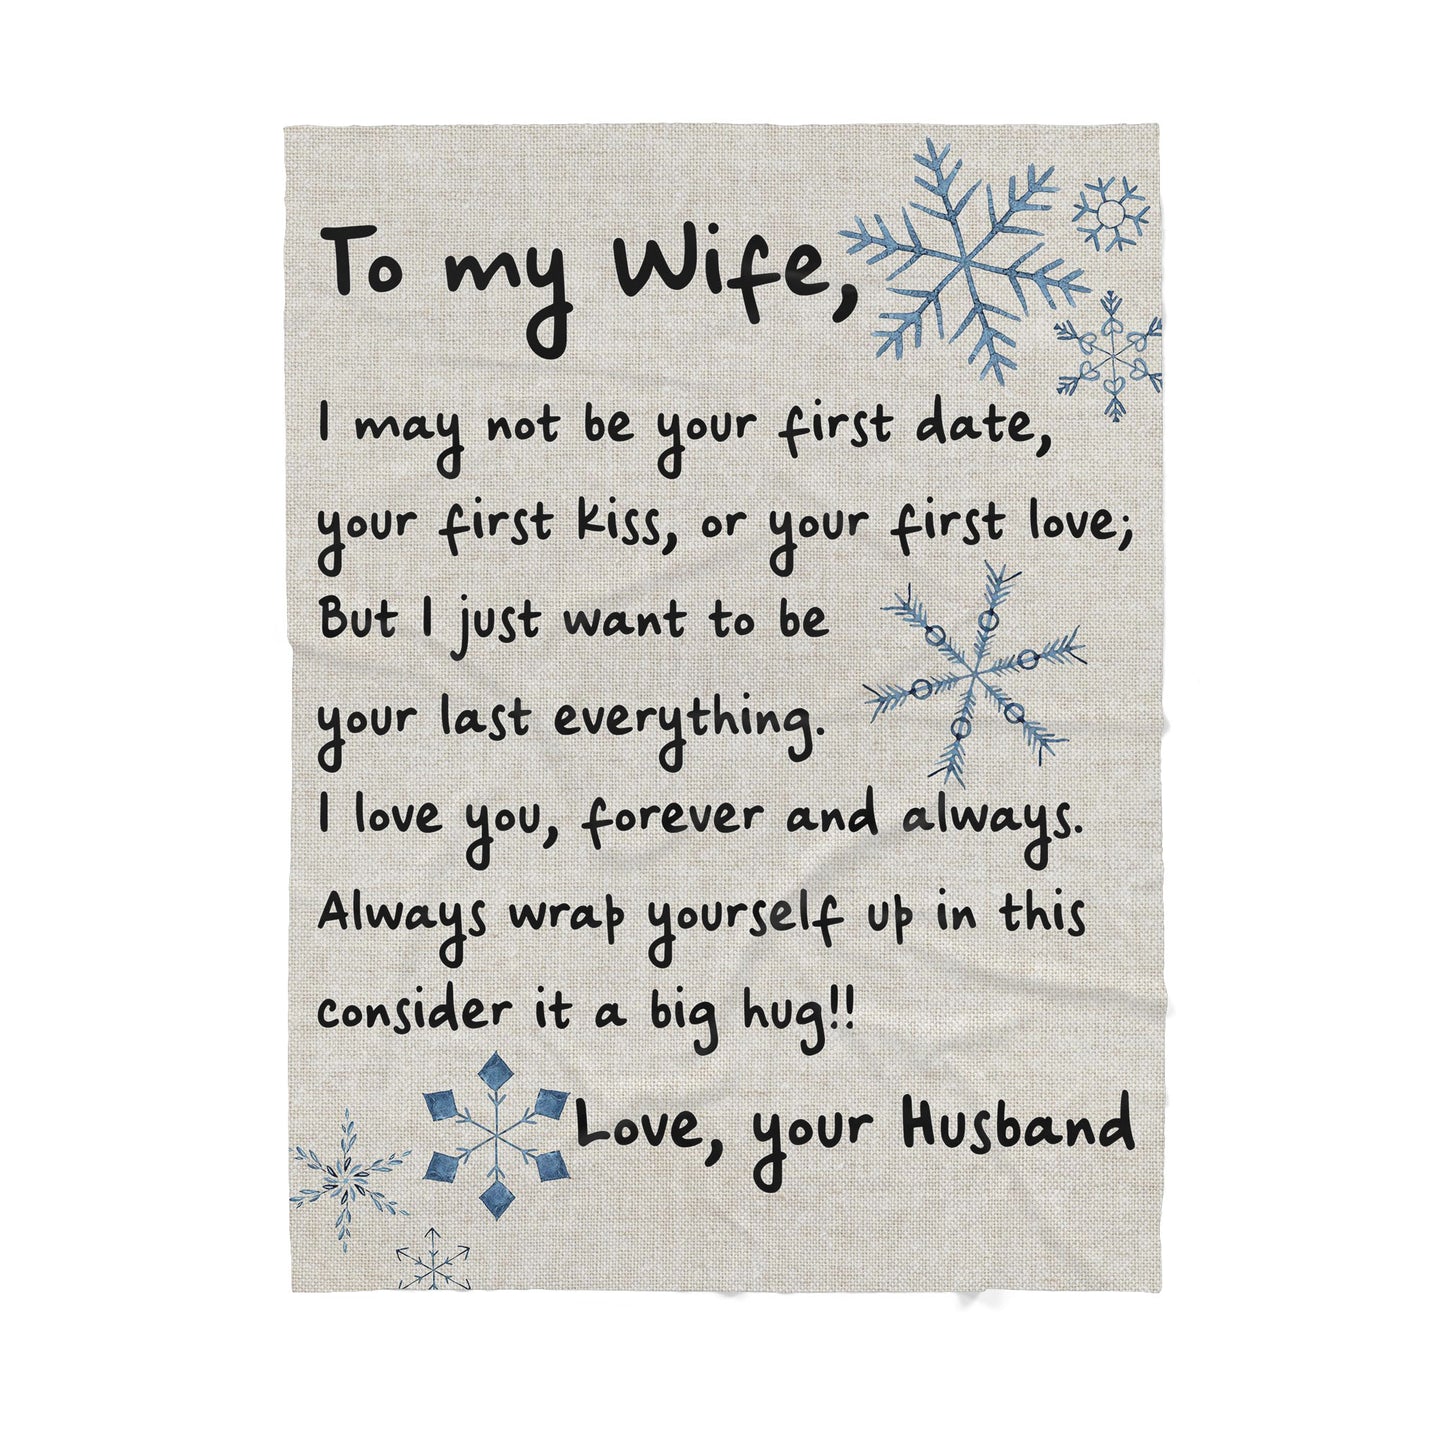 To my Wife,
I may not be your first date,
your first kiss, or your first love;
But I just want to be
your last everything.
I love you, forever and always.
Always wrap yourself up in this
consider it a big hug!!
Love, your Husband